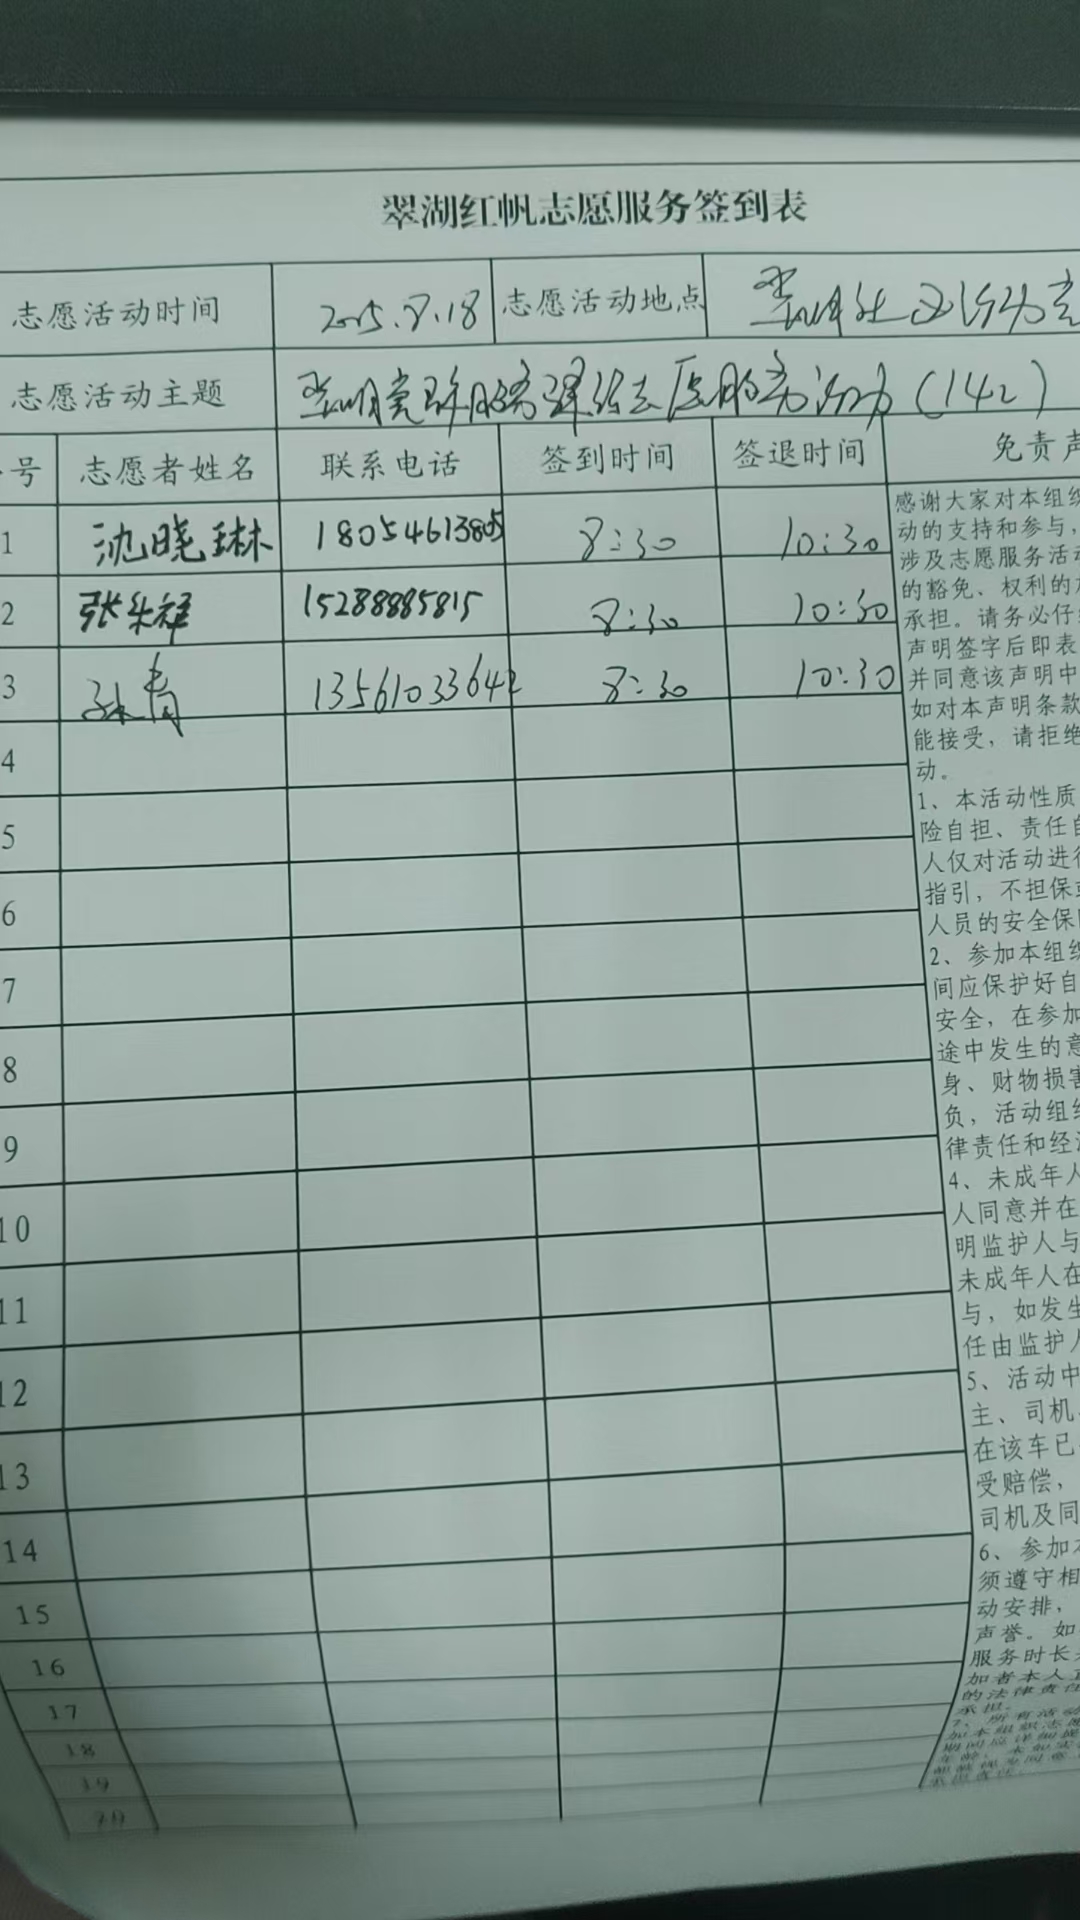 翠湖红帆志愿服务签到表
志愿活动时间 2025.8.18 志愿活动地点
志愿活动主题 (142)
号 志愿者姓名 联系电话 签到时间 签退时间 免责声
1 沈晓琳 18054613805 8:30 10:30
2 张乐祥 15288885815 8:30 10:30
3 孙青 13561033642 8:30 10:30
4
5
6
7
8
9
10
11
12
13
14
15
16
17
18
19
20
感谢大家对本组织
动的支持和参与，
涉及志愿服务活动
的豁免、权利的放
承担。请务必仔细
声明签字后即表
并同意该声明中
如对本声明条款
能接受，请拒绝
动。
1、本活动性质
险自担、责任自
人仅对活动进行
指引，不担保或
人员的安全保障
2、参加本组织
间应保护好自
安全，在参加
途中发生的意
身、财物损害
负，活动组织
律责任和经济
4、未成年人
人同意并在
明监护人与
未成年人在
与，如发生
任由监护人
5、活动中
主、司机
在该车已
受赔偿，
司机及同
6、参加本
须遵守相
动安排，
声誉。如
服务时长
加者本人
的法律责任
承担。
7、所有活动